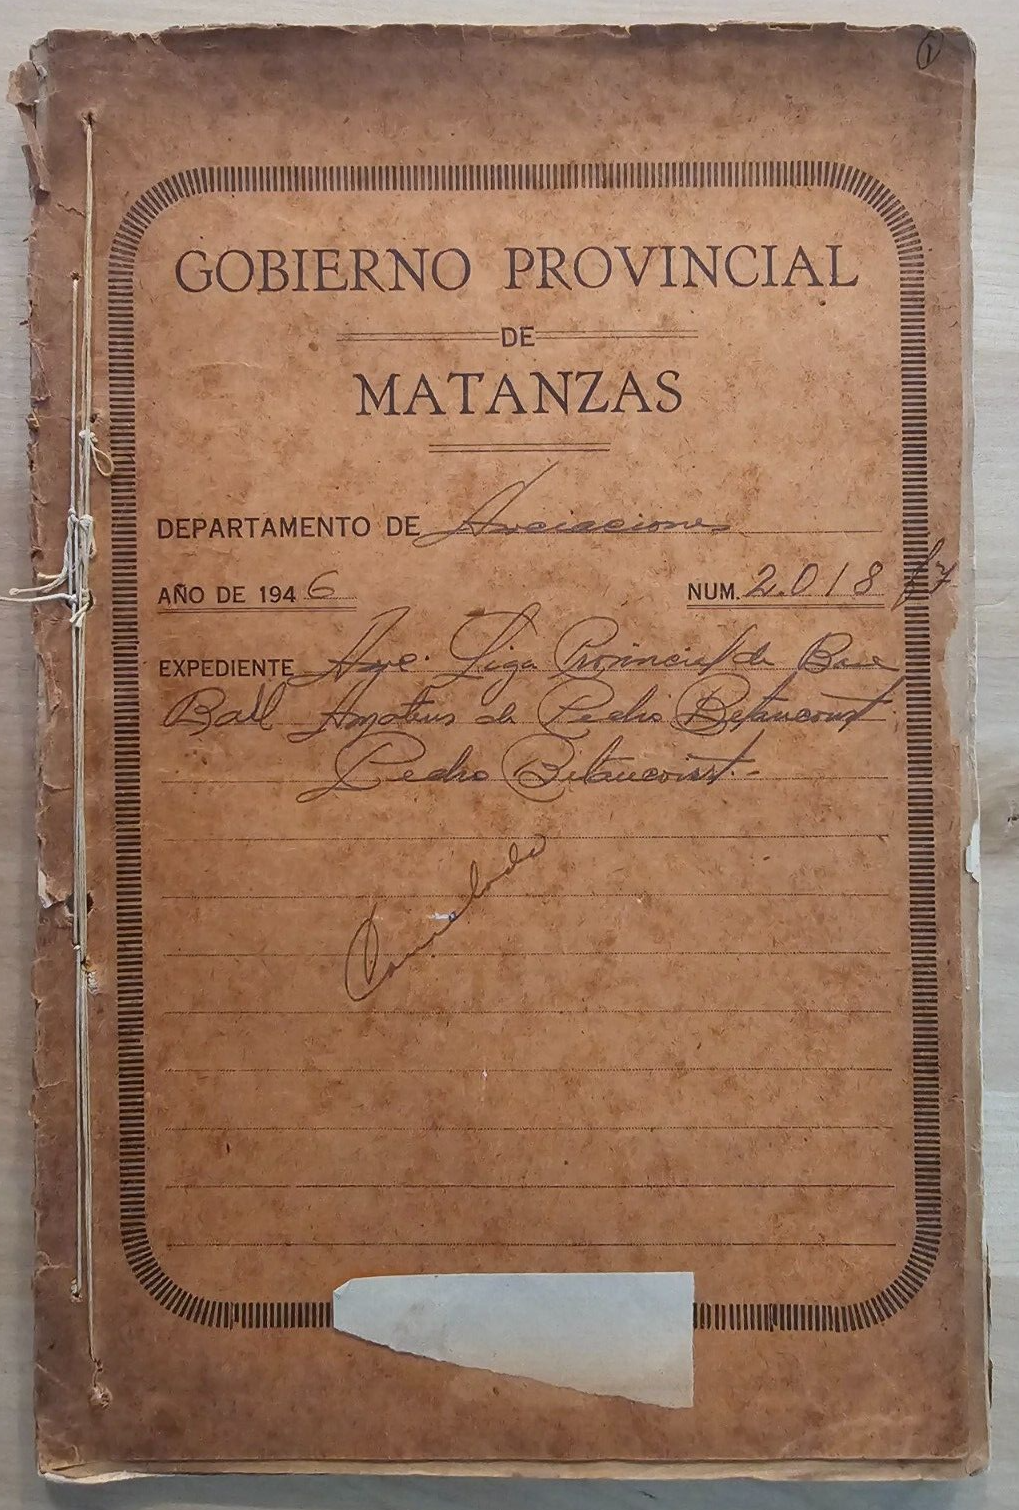 1
GOBIERNO PROVINCIAL
DE
MATANZAS
DEPARTAMENTO DE Asociaciones
AÑO DE 1946 NUM. 2.018
EXPEDIENTE Liga Provincial de Base
Ball Amateur de Pedro Betancourt
Pedro Betancourt.-
Cancelado